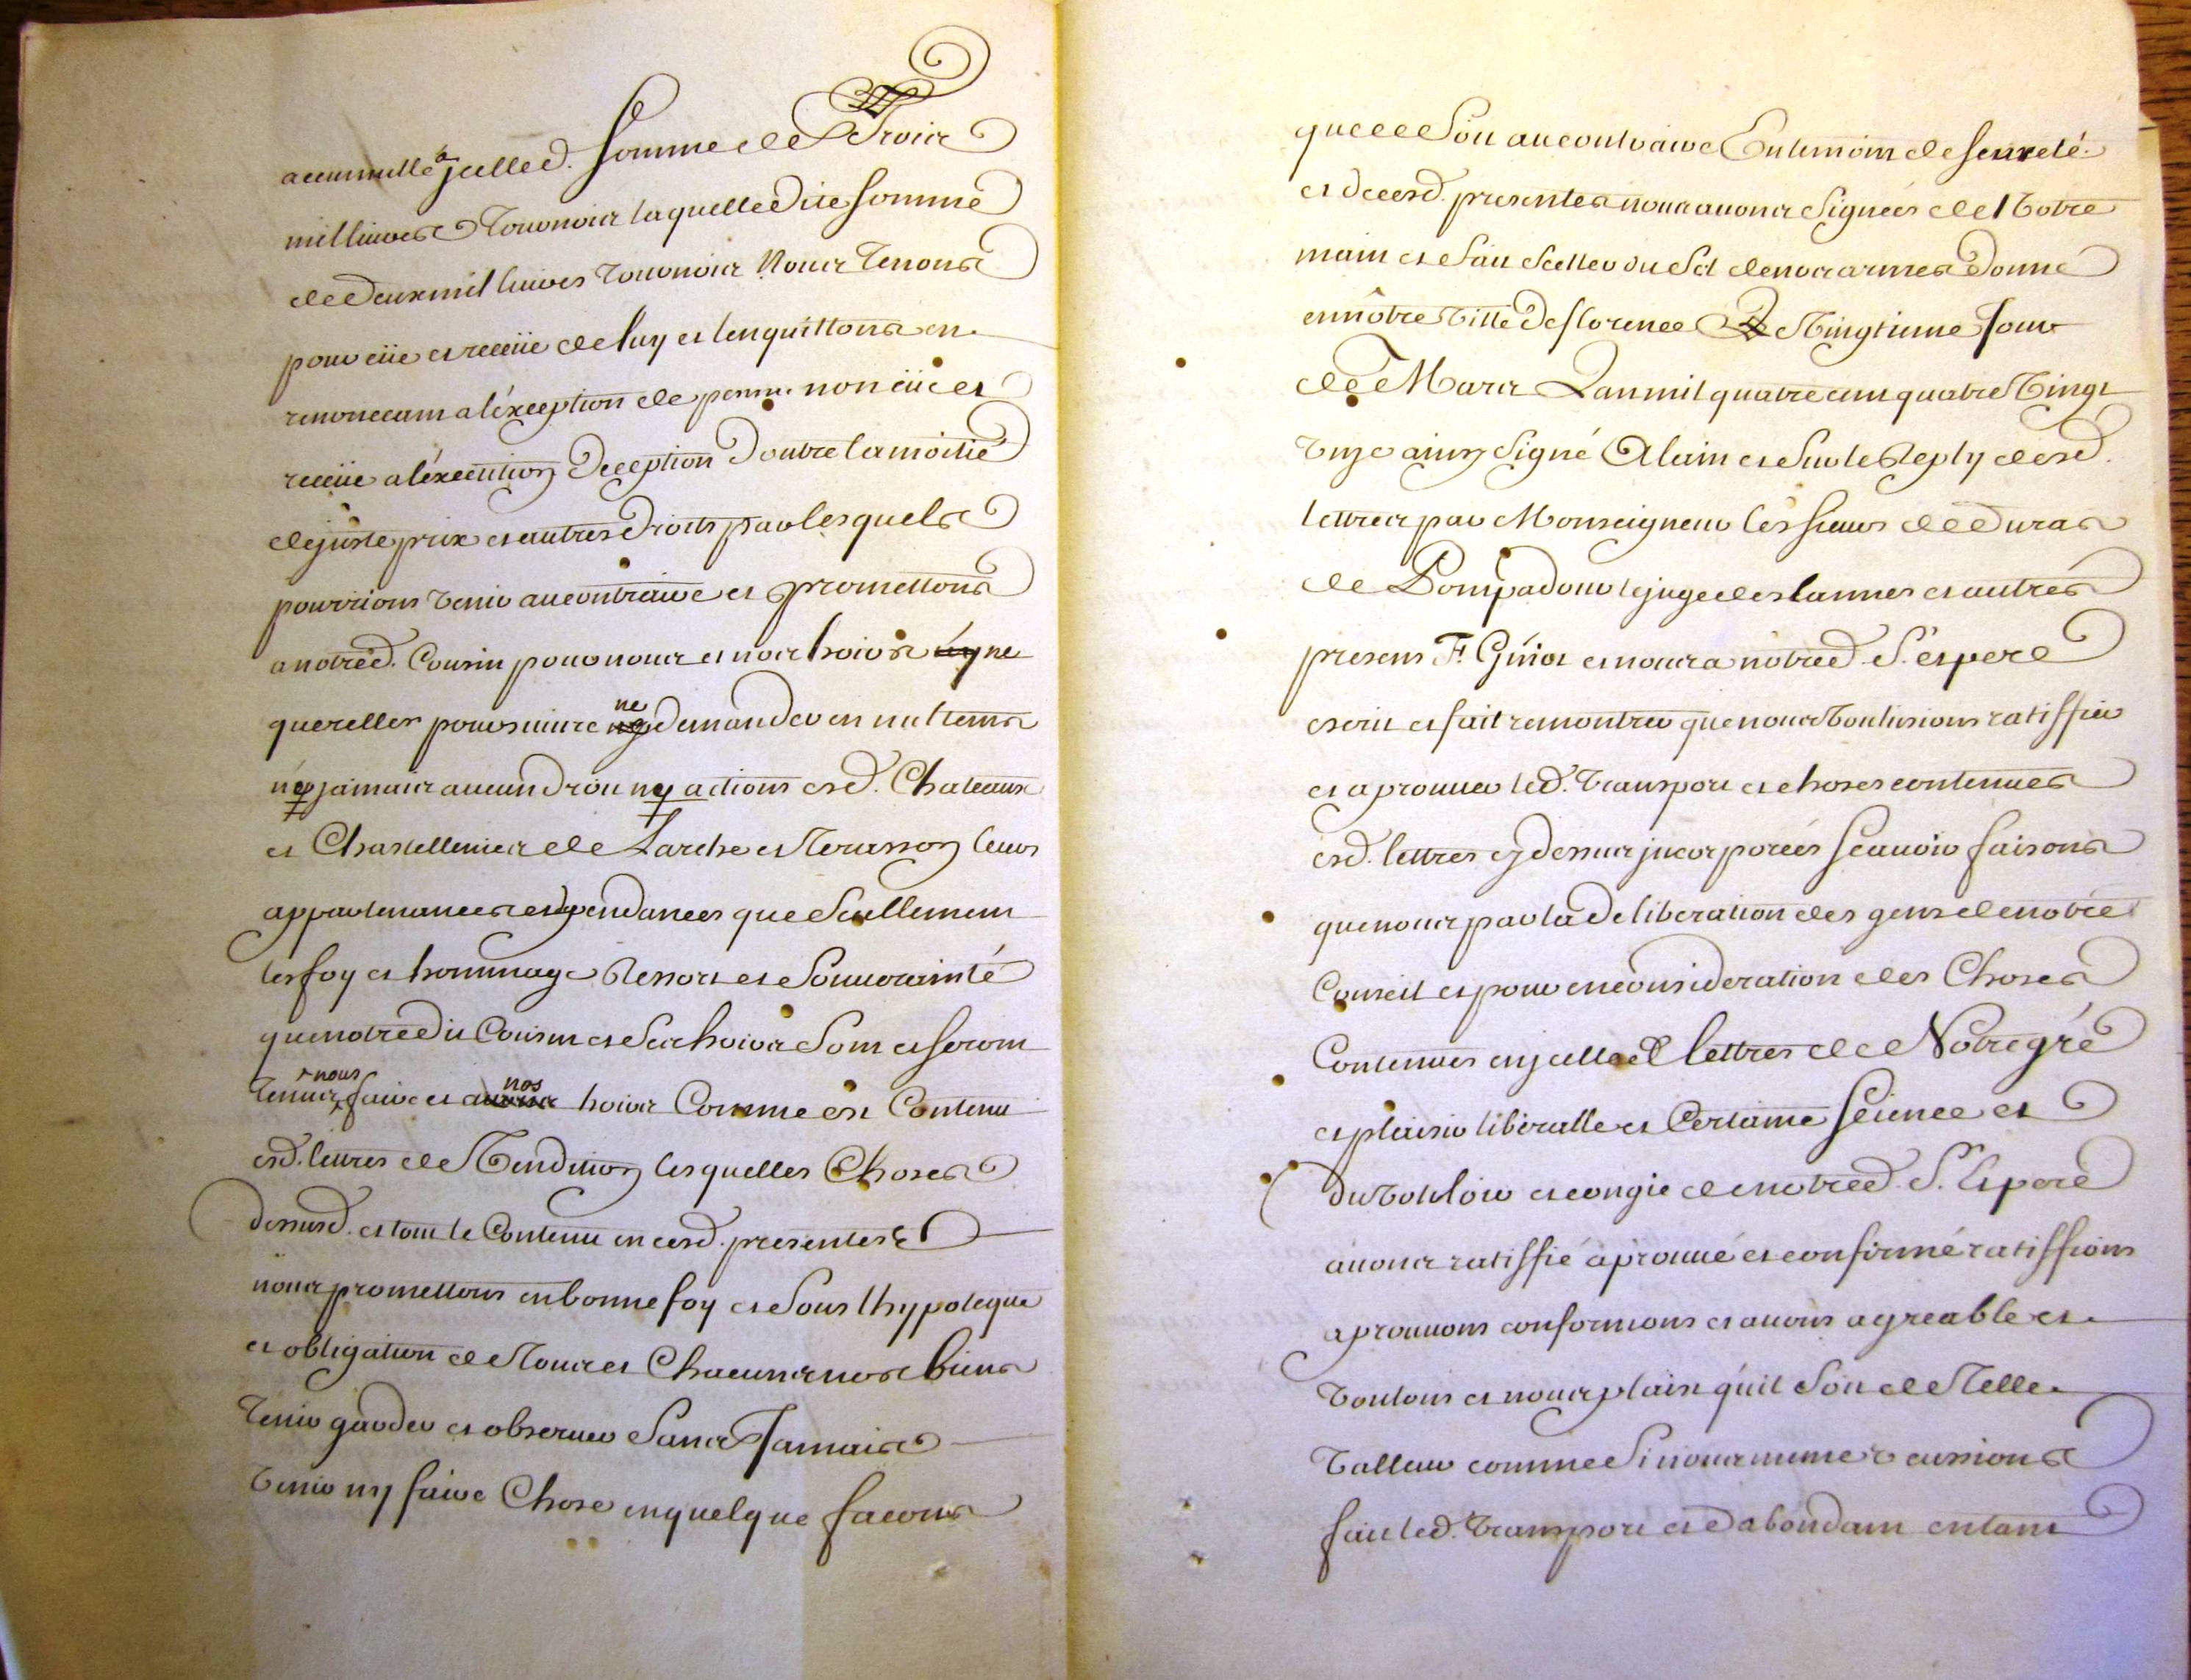 accumullé a jcelle d. Somme de Trois
mil livres Tournois laquelle Dite Somme
de Deux mil livres Tournois Nous Tenons
pour eüe et receüe de luy et lenquittons en
renoncant a léxception de pecune non eüe et
receüe a léxecution Deception Doutre la moitié
de juste prix et autres Droits par lesquels
pourrions Venir au contraire et promettons
a notre d. Cousin pour nous et nos hoirs ne
quereller poursuivre ne demander en nul tems
ny jamais aucun Droit ny actions esd. Chateaux
et Chastellenies de Larche et Terasson leurs
appartenances et dependances que Seullement
les foy et hommage Ressort et Souverainté
que notre Dit Cousin et Ses hoirs Sont et seront
Tenus nous faire et a nos hoirs Comme est Contenu
esd. lettres de Vendition lesquelles Choses
dessusd. et tout le Contenu en cesd. presentes
nous promettons en bonne foy et Sous lhypoteque
et obligation de Tous et Chacuns nos biens
Tenir garder et observer Sans Jamais
Venir ny faire Chose en quelque facons
que ce Soit au contraire En temoin de seureté
et de cesd. presentes nous avons Signées de Notre
main et fait Sceller du Scel de nos armes Donné
en nôtre Ville de florence Le Vingtieme Jour
de Mars Lan mil quatre cent quatre Vingt
Unze ainsy Signé Alain et Sur le Reply desd.
lettres par Monseigneur les sieurs de Duras
de Pompadour le juge des lannes et autres
presens F. Guiot et nous a nôtre d. S. et pere
escrit et fait remontrer que nous Voulusions ratiffier
et aprouver led. Transport et choses contenues
esd. lettres cy dessus jncorporées scavoir faisons
que nous par la Deliberation des gens de notre
Conseil et pour en consideration des Choses
Contenues en jcelles lettres de Notre gré
et plaisir liberalle et Certaine science et
du Vouloir et congie de notre d. S. et pere
avons ratiffié aprouvé et confirmé ratiffions
aprouvons conformons et avons agreable et
Voulons et nous plaist quil Soit de Telle
Valleur comme Si nous memes eussions
fait led. Transport et dabondant en tant